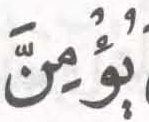 يُؤْمِنَّ